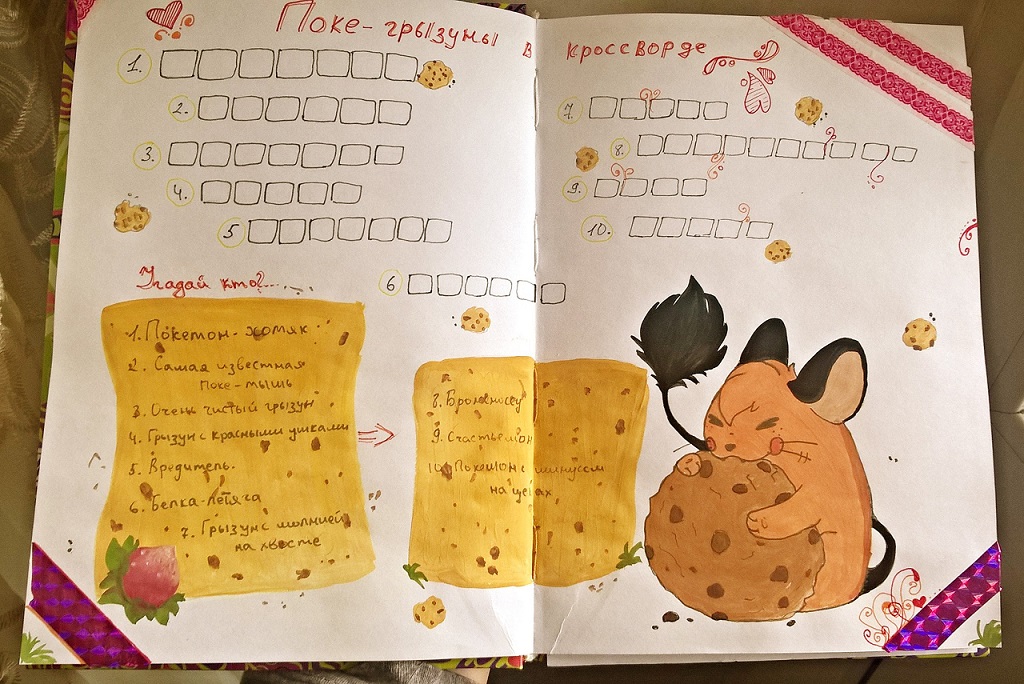 Поке-грызуны в кроссворде
1.
2.
3.
4.
5
6
7.
8.
9.
10.
Угадай кто?...
1. Покемон-хомяк
2. Самая известная
поке-мышь
3. Очень чистый грызун
4. Грызун с красными ушками
5. Вредитель.
6. Белка-летяга
7. Грызун с молнией
на хвосте
8. Броненосец
9. Счастьемон
10. Покемон с минусом
на щеках